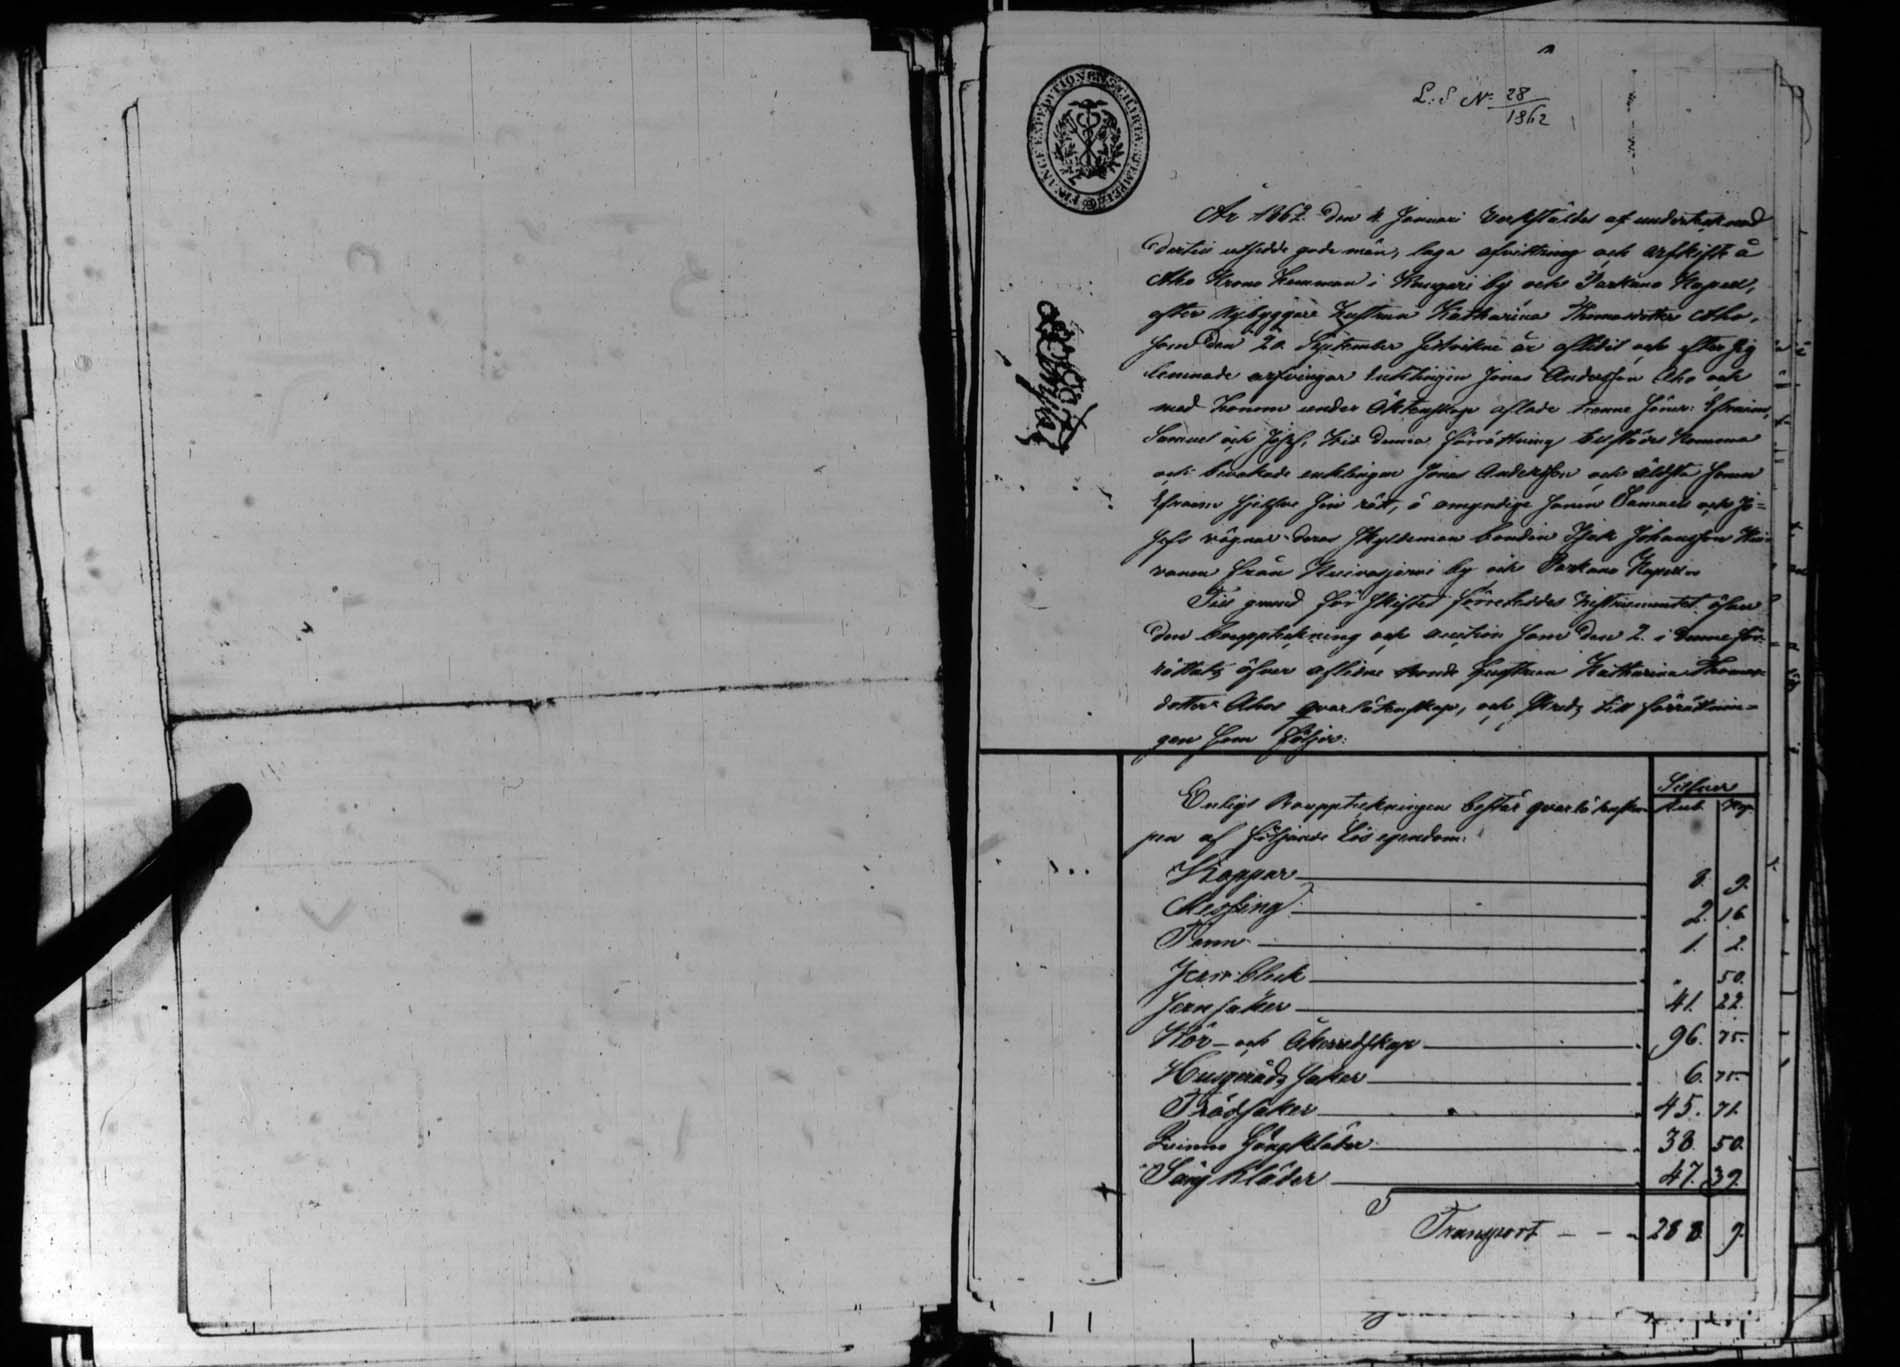 L: S No 28/1862
År 1862 den 4 Januari verkstäldes af undertecknad
dertill utsedde gode män, laga afvittring och arfskifte å
Aho Krono hemman i Kangari by och Parkano Kapell,
efter Nybyggare hustrun Katharina Thomasdotter Aho,
som den 20 September sistvikne år aflidit och efter sig
lemnade arfvingar enklingen Jonas Andersson Aho och
med honom under äktenskap aflade trenne söner: Efraim,
Samuel och Josef. Vid denna förrättning tillstädes komma
och bevakade enklingen Jonas Andersson och äldsta sonen
Efraim sjelfve sin rätt, å omyndige sönen Samuels och Jo=
sefs vägnar deras förmyndare bonden Isak Johansson
från Kuivasjärvi by och Parkano Kapell
Till grund för skiftet företeddes instrumentet öfver
den bouppteckning och auction som den 2. i denne för-
rättats öfver aflidne bonde hustrun Katharina Thomas-
dotter Ahos qvarlåtenskap, och skreds till förrättnin=
gen som följer:
Silfver
Enligt Bouppteckningen består qvarlåtenska- Rub. Kop.
pen af följande Lös egendom:
Koppar 8. 9.
Messing 2. 16.
Tenn 1. 2.
Jern bleck " 50.
Jernsaker 41. 22.
Kör- och Åkerredskap 96. 75.
Husgeråds saker 6. 75.
Trädsaker 45. 71.
Qvinno Gångkläder 38. 50.
Sängkläder 47. 39.
Transport - - 288 9.